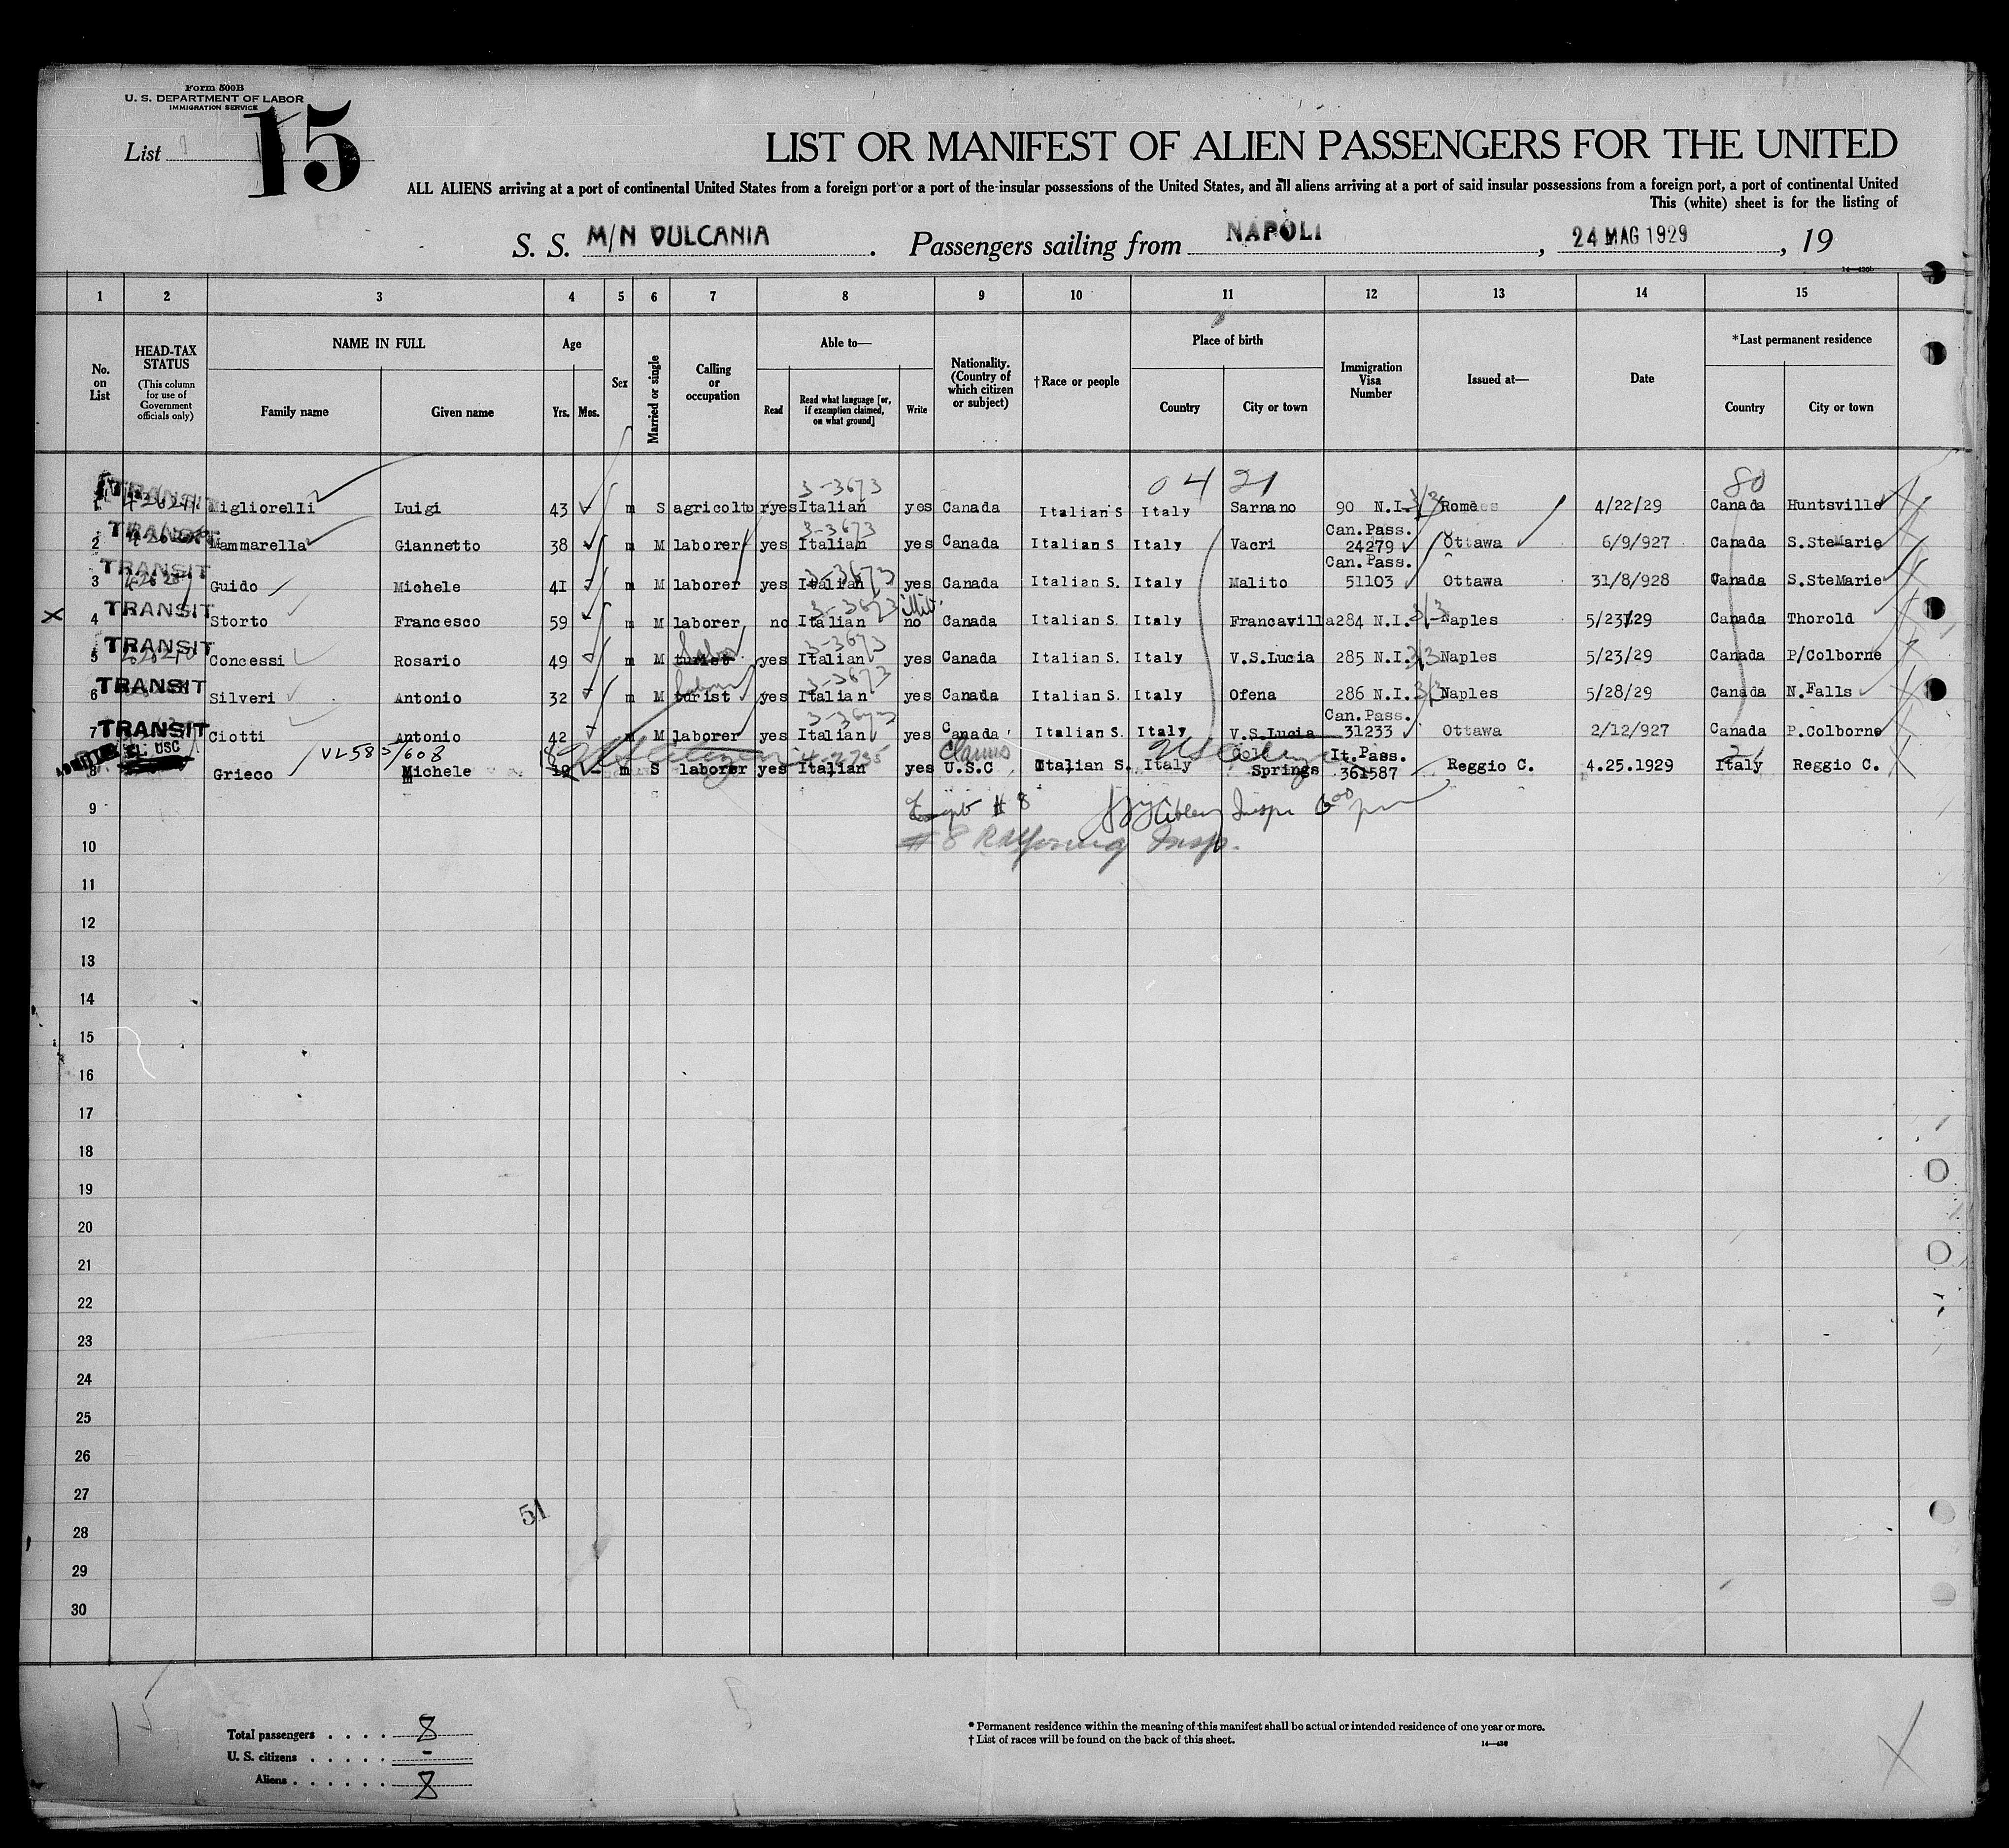 Form 500B
U. S. DEPARTMENT OF LABOR
IMMIGRATION SERVICE
List 15
LIST OR MANIFEST OF ALIEN PASSENGERS FOR THE UNITED
ALL ALIENS arriving at a port of continental United States from a foreign port or a port of the insular possessions of the United States, and all aliens arriving at a port of said insular possessions from a foreign port, a port of continental United
This (white) sheet is for the listing of
S. S. M/N VULCANIA. Passengers sailing from NAPOLI, 24 MAG 1929, 19
1 2 3 4 5 6 7 8 9 10 11 12 13 14 15
No. on List
HEAD-TAX STATUS (This column for use of Government officials only)
NAME IN FULL Family name Given name
Age Yrs. Mos.
Sex
Married or single
Calling or occupation
Able to— Read Read what language [or, if exemption claimed, on what ground] Write
Nationality. (Country of which citizen or subject)
†Race or people
Place of birth Country City or town
Immigration Visa Number
Issued at—
Date
*Last permanent residence Country City or town
3-3673 04 21 80
TRANSIT Migliorelli Luigi 43 m S agricoltu r yes Italian yes Canada Italian S Italy Sarnano 90 N.I. 3/3 Rome 4/22/29 Canada Huntsville
3-3673 Can.Pass.
2 TRANSIT Mammarella Giannetto 38 m M laborer yes Italian yes Canada Italian S. Italy Vacri 24279 Ottawa 6/9/927 Canada S.SteMarie
3-3673 Can.Pass.
3 TRANSIT Guido Michele 41 m M laborer yes Italian yes Canada Italian S. Italy Malito 51103 Ottawa 31/8/928 Canada S.SteMarie
3-3673
X 4 TRANSIT Storto Francesco 59 m M laborer no Italian no Canada Italian S. Italy Francavilla 284 N.I. 3/3 Naples 5/23/29 Canada Thorold
3-3673
5 TRANSIT Concessi Rosario 49 m M turist yes Italian yes Canada Italian S. Italy V.S.Lucia 285 N.I. 3/3 Naples 5/23/29 Canada P/Colborne
3-3673
6 TRANSIT Silveri Antonio 32 m M turist yes Italian yes Canada Italian S. Italy Ofena 286 N.I. 3/3 Naples 5/28/29 Canada N.Falls
3-3673 Can.Pass.
7 TRANSIT Ciotti Antonio 42 m M laborer yes Italian yes Canada Italian S. Italy V.S.Lucia 31233 Ottawa 2/12/927 Canada P.Colborne
ADMITTED USC VL 585/608 US Citizen Claims It.Pass.
8 Grieco Michele 19 m S laborer yes Italian yes U.S.C Italian S. Italy Springs 361587 Reggio C. 4.25.1929 Italy Reggio C.
9 Except #8 Insp. 6 00 pm
10 #8 Insp.
11
12
13
14
15
16
17
18
19
20
21
22
23
24
25
26
27
51
28
29
30
15
Total passengers . . . . 8
U. S. citizens . . . . . -
Aliens . . . . . . 8
* Permanent residence within the meaning of this manifest shall be actual or intended residence of one year or more.
† List of races will be found on the back of this sheet.
14—430
X